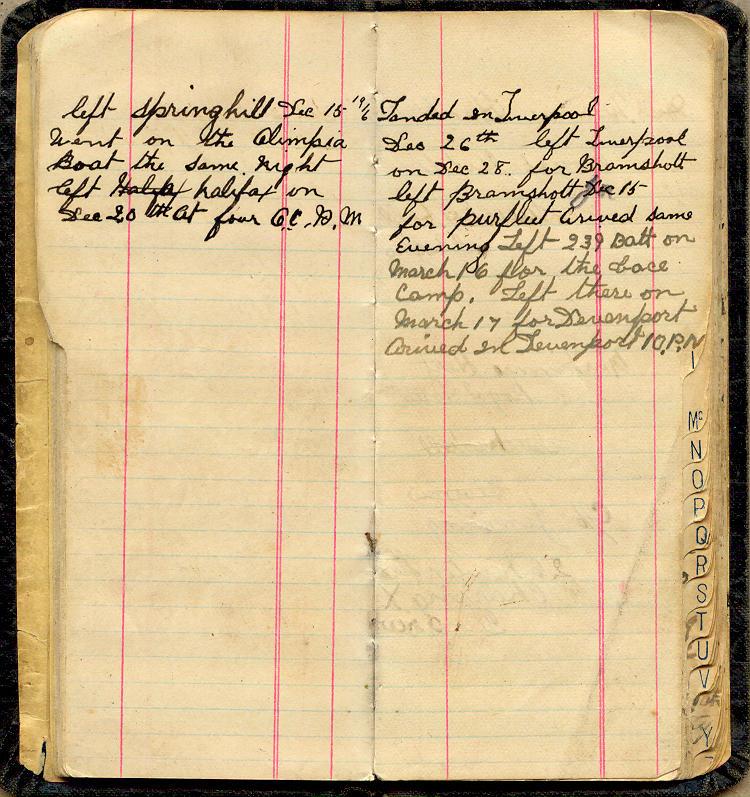 left Springhill Dec 15 1916
Went on the Olimpia
Boat the same night
left Halifax halifax on
Dec 20 th At four OC. P.M
Landed in Liverpool
Dec 26th left Liverpool
on Dec 28. for Bramshott
left Bramshott Jan 15
for purfleet Arived same
Evening Left 239 Batt on
March 16 for the bace
Camp. Left there on
March 17 for Devenport
Arived in Devenport 10.P.M
Mc
N
O
P
Q
R
S
T
U
V
Y